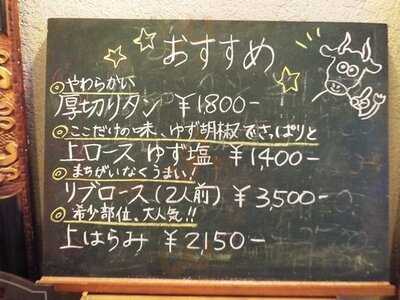 おすすめ
◎やわらかい
厚切りタン ¥1800-
◎ここだけの味、ゆず胡椒でさっぱりと
上ロース ゆず塩 ¥1,400-
◎まちがいなくうまい!
リブロース(2人前) ¥3,500-
◎希少部位、大人気!!
上はらみ ¥2,150-